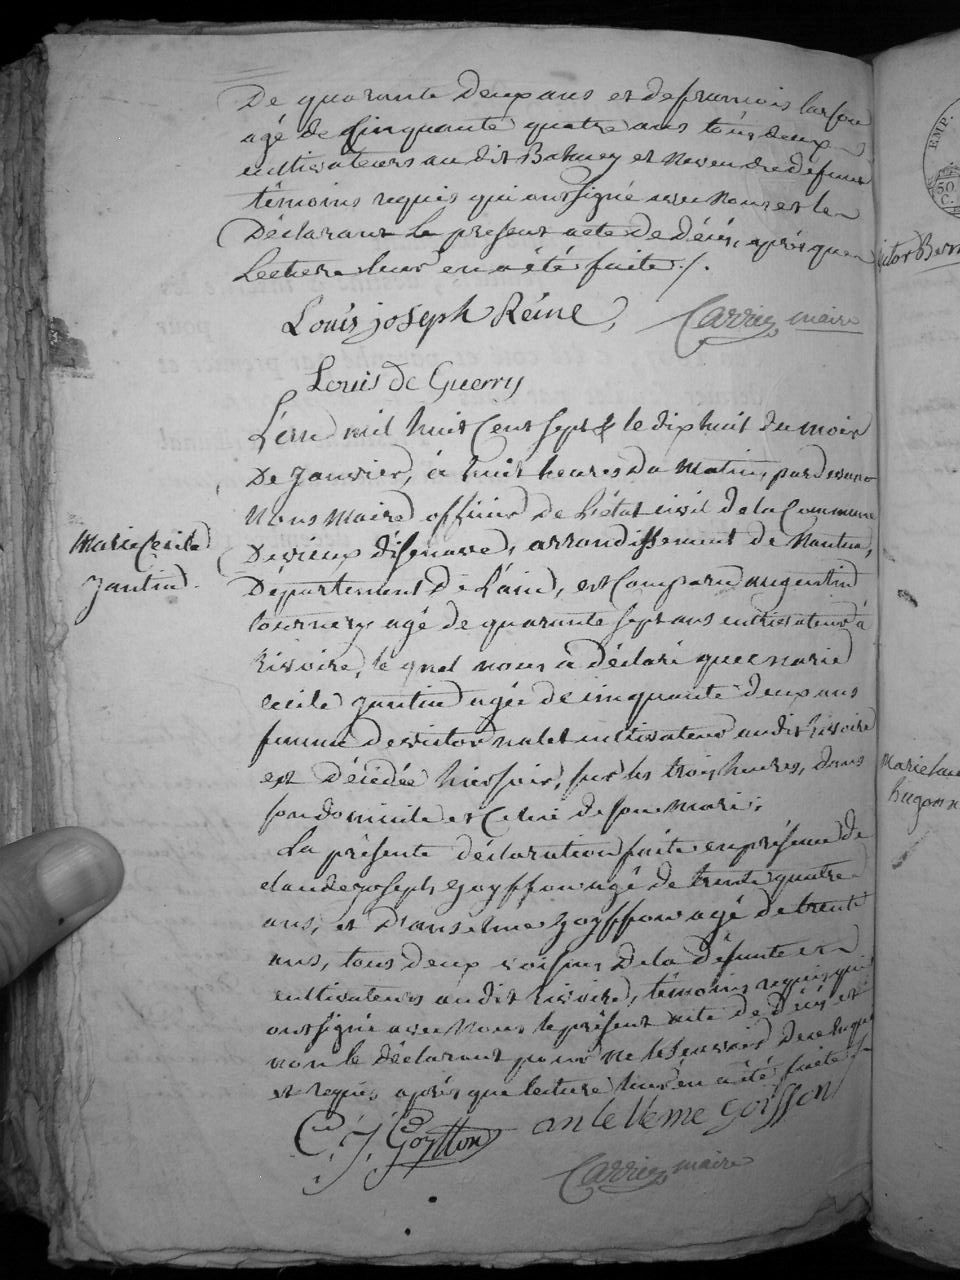 De quarante deux ans et de francois
agé de Cinquante quatre ans tous deux
cultivateurs au dit et neveu du defunt
témoins requis qui ont signé avec nous et le
Déclarant le present acte de décès, après que
Lecture leur en a été faite ./.
Louis joseph Réine, Carrier maire
Louis de Guerry
L'an mil huit Cent sept le dix huit du mois
De Janvier, à huit heures du Matin, par devant
Nous Maire officier de L'état civil de la Commune
De vieux d'isenave, arrondissement de Nantua,
Département de L'ain, est Comparu augustin
tournery agé de quarante sept ans cultivateur à
risoire, le quel nous à déclaré que marie
cecile jantin agée de cinquante deux ans
femme de victor nalet cultivateur au dit risoire
est Décédée hier soir, sur les trois heures, dans
son domicile et Celui de son mari;
La présente déclaration faite en présence de
claude joseph goyffon agé de trente quatre
ans, et D'anselme goyffon agé de trente
ans, tous deux voisins De la Défunte et
cultivateurs au dit risoire, témoins requis qui
ont signé avec Nous le présent acte de Décès et
non le déclarant pour ne le savoir De ce enquis
et requis après que lecture leur en a été faite
C. J. Goyffon anselème goiffon
Carrier maire
Marie Cecile
Jantin.
EMP.
50.
C.
victor Bern